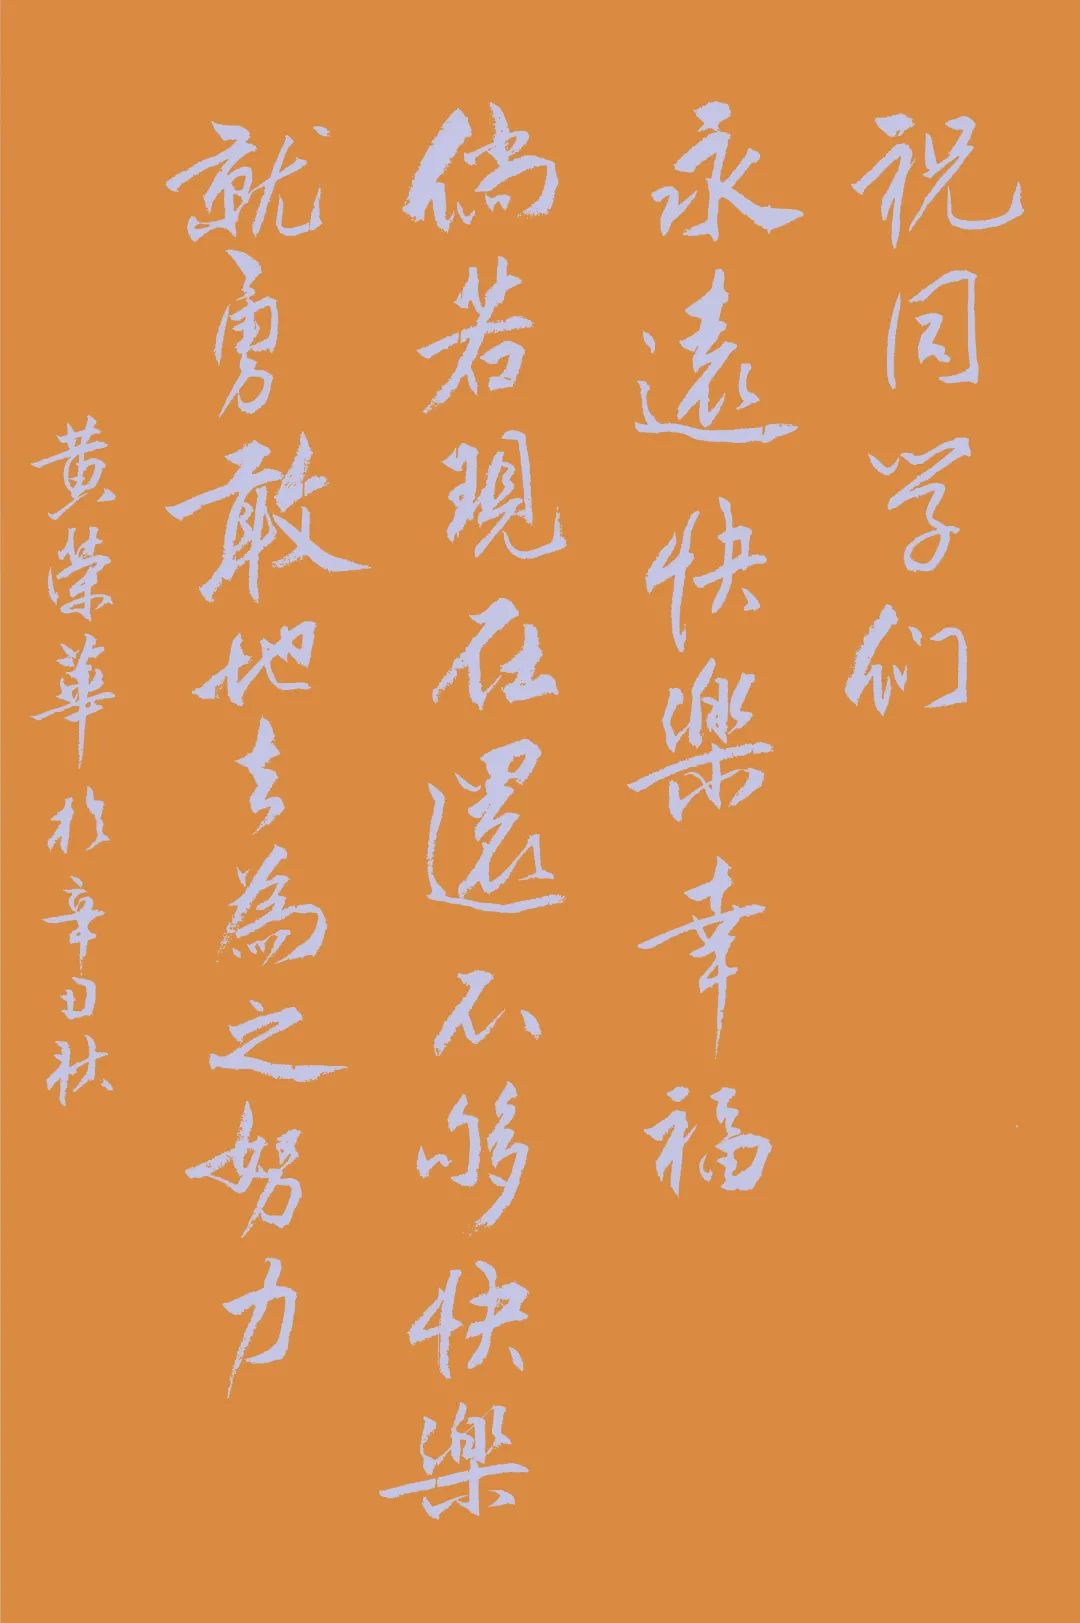 祝同学们
永遠快樂幸福
倘若現在還不够快樂
就勇敢地去為之努力
黄荣華於辛丑秋